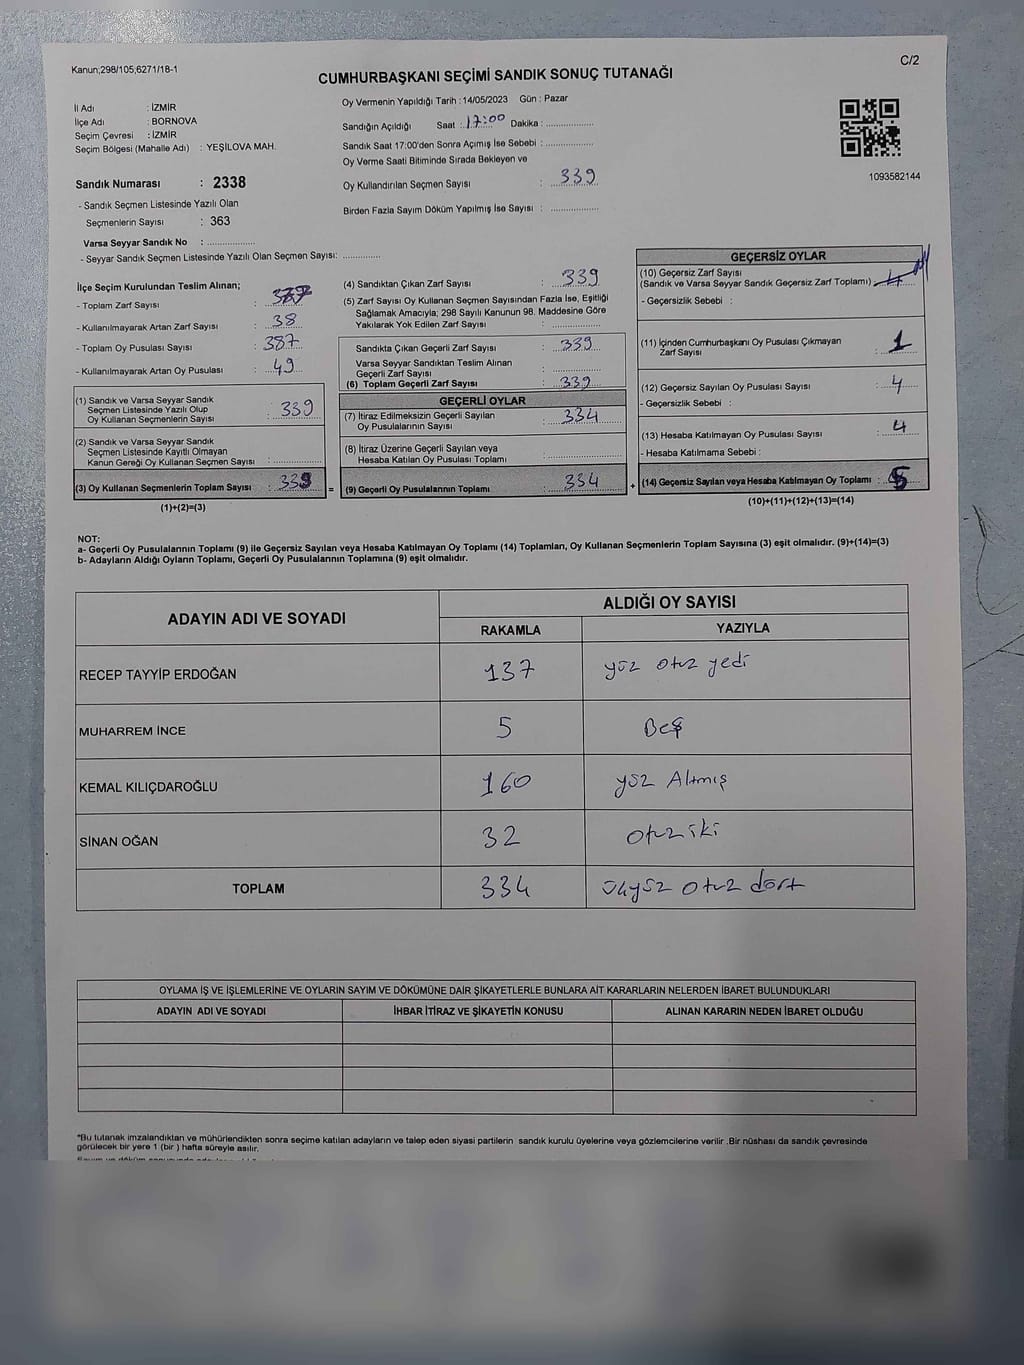 Kanun;298/105;6271/18-1
C/2
CUMHURBAŞKANI SEÇİMİ SANDIK SONUÇ TUTANAĞI
İl Adı : İZMİR
İlçe Adı : BORNOVA
Seçim Çevresi : İZMİR
Seçim Bölgesi (Mahalle Adı) : YEŞİLOVA MAH.
Sandık Numarası : 2338
- Sandık Seçmen Listesinde Yazılı Olan
Seçmenlerin Sayısı : 363
Varsa Seyyar Sandık No : ................
- Seyyar Sandık Seçmen Listesinde Yazılı Olan Seçmen Sayısı: ............
Oy Vermenin Yapıldığı Tarih : 14/05/2023 Gün : Pazar
Sandığın Açıldığı Saat : 17:00 Dakika : ................
Sandık Saat 17:00'den Sonra Açımış İse Sebebi : ................
Oy Verme Saati Bitiminde Sırada Bekleyen ve
Oy Kullandırılan Seçmen Sayısı : 339
Birden Fazla Sayım Döküm Yapılmış İse Sayısı : ................
1093582144
İlçe Seçim Kurulundan Teslim Alınan;
- Toplam Zarf Sayısı :
- Kullanılmayarak Artan Zarf Sayısı : 38
- Toplam Oy Pusulası Sayısı : 387
- Kullanılmayarak Artan Oy Pusulası : 49
(1) Sandık ve Varsa Seyyar Sandık
Seçmen Listesinde Yazılı Olup
Oy Kullanan Seçmenlerin Sayısı : 339
(2) Sandık ve Varsa Seyyar Sandık
Seçmen Listesinde Kayıtlı Olmayan
Kanun Gereği Oy Kullanan Seçmen Sayısı : ............
(3) Oy Kullanan Seçmenlerin Toplam Sayısı : 339 =
(1)+(2)=(3)
(4) Sandıktan Çıkan Zarf Sayısı : 339
(5) Zarf Sayısı Oy Kullanan Seçmen Sayısından Fazla İse, Eşitliği
Sağlamak Amacıyla; 298 Sayılı Kanunun 98. Maddesine Göre
Yakılarak Yok Edilen Zarf Sayısı : ................
Sandıkta Çıkan Geçerli Zarf Sayısı : 339
Varsa Seyyar Sandıktan Teslim Alınan
Geçerli Zarf Sayısı : ................
(6) Toplam Geçerli Zarf Sayısı : 339
GEÇERLİ OYLAR
(7) İtiraz Edilmeksizin Geçerli Sayılan
Oy Pusulalarının Sayısı : 334
(8) İtiraz Üzerine Geçerli Sayılan veya
Hesaba Katılan Oy Pusulası Toplamı : ................
(9) Geçerli Oy Pusulalarının Toplamı : 334 +
GEÇERSİZ OYLAR
(10) Geçersiz Zarf Sayısı
(Sandık ve Varsa Seyyar Sandık Geçersiz Zarf Toplamı)
- Geçersizlik Sebebi :
(11) İçinden Cumhurbaşkanı Oy Pusulası Çıkmayan
Zarf Sayısı : 1
(12) Geçersiz Sayılan Oy Pusulası Sayısı : 4
- Geçersizlik Sebebi :
(13) Hesaba Katılmayan Oy Pusulası Sayısı : 4
- Hesaba Katılmama Sebebi :
(14) Geçersiz Sayılan veya Hesaba Katılmayan Oy Toplamı : 5
(10)+(11)+(12)+(13)=(14)
NOT:
a- Geçerli Oy Pusulalarının Toplamı (9) ile Geçersiz Sayılan veya Hesaba Katılmayan Oy Toplamı (14) Toplamları, Oy Kullanan Seçmenlerin Toplam Sayısına (3) eşit olmalıdır. (9)+(14)=(3)
b- Adayların Aldığı Oyların Toplamı, Geçerli Oy Pusulalarının Toplamına (9) eşit olmalıdır.
ADAYIN ADI VE SOYADI ALDIĞI OY SAYISI
RAKAMLA YAZIYLA
RECEP TAYYİP ERDOĞAN 137 yüz otuz yedi
MUHARREM İNCE 5 Beş
KEMAL KILIÇDAROĞLU 160 yüz Altmış
SİNAN OĞAN 32 otuz iki
TOPLAM 334 üçyüz otuz dört
OYLAMA İŞ VE İŞLEMLERİNE VE OYLARIN SAYIM VE DÖKÜMÜNE DAİR ŞİKAYETLERLE BUNLARA AİT KARARLARIN NELERDEN İBARET BULUNDUKLARI
ADAYIN ADI VE SOYADI İHBAR İTİRAZ VE ŞİKAYETİN KONUSU ALINAN KARARIN NEDEN İBARET OLDUĞU
*Bu tutanak imzalandıktan ve mühürlendikten sonra seçime katılan adayların ve talep eden siyasi partilerin sandık kurulu üyelerine veya gözlemcilerine verilir .Bir nüshası da sandık çevresinde
görülecek bir yere 1 (bir ) hafta süreyle asılır.